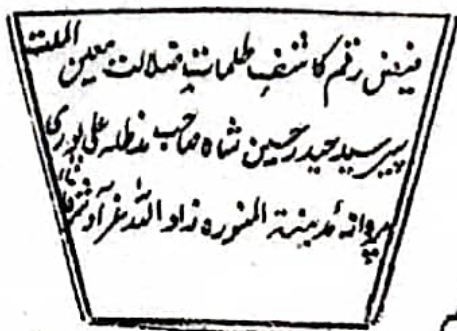 فیض رقم کاشفِ ظلماتِ ضلالت معین الملت
پیر سید حیدر حسین شاہ صاحب مدظلہ علی پوری
پروانۂ مدینۃ المنورہ زاد اللہ